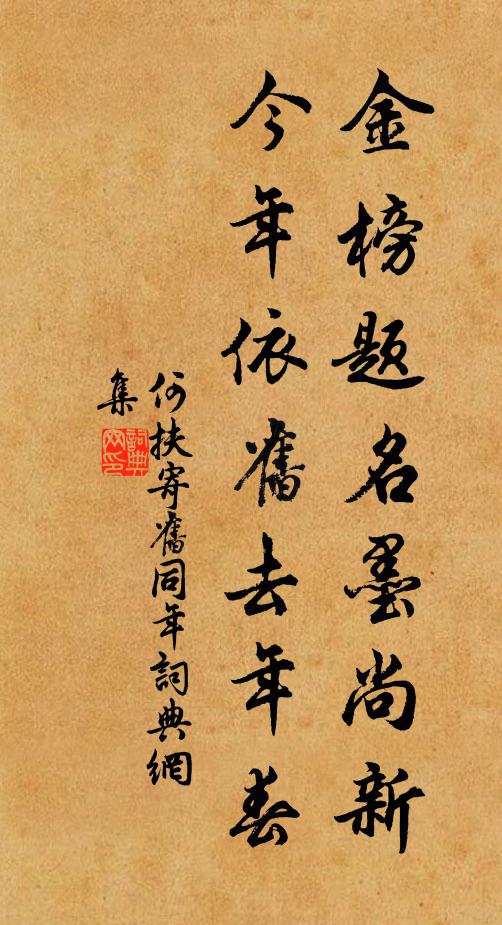 金榜题名墨尚新
今年依舊去年春
何扶寄舊同年詞典網
集
詞典網印